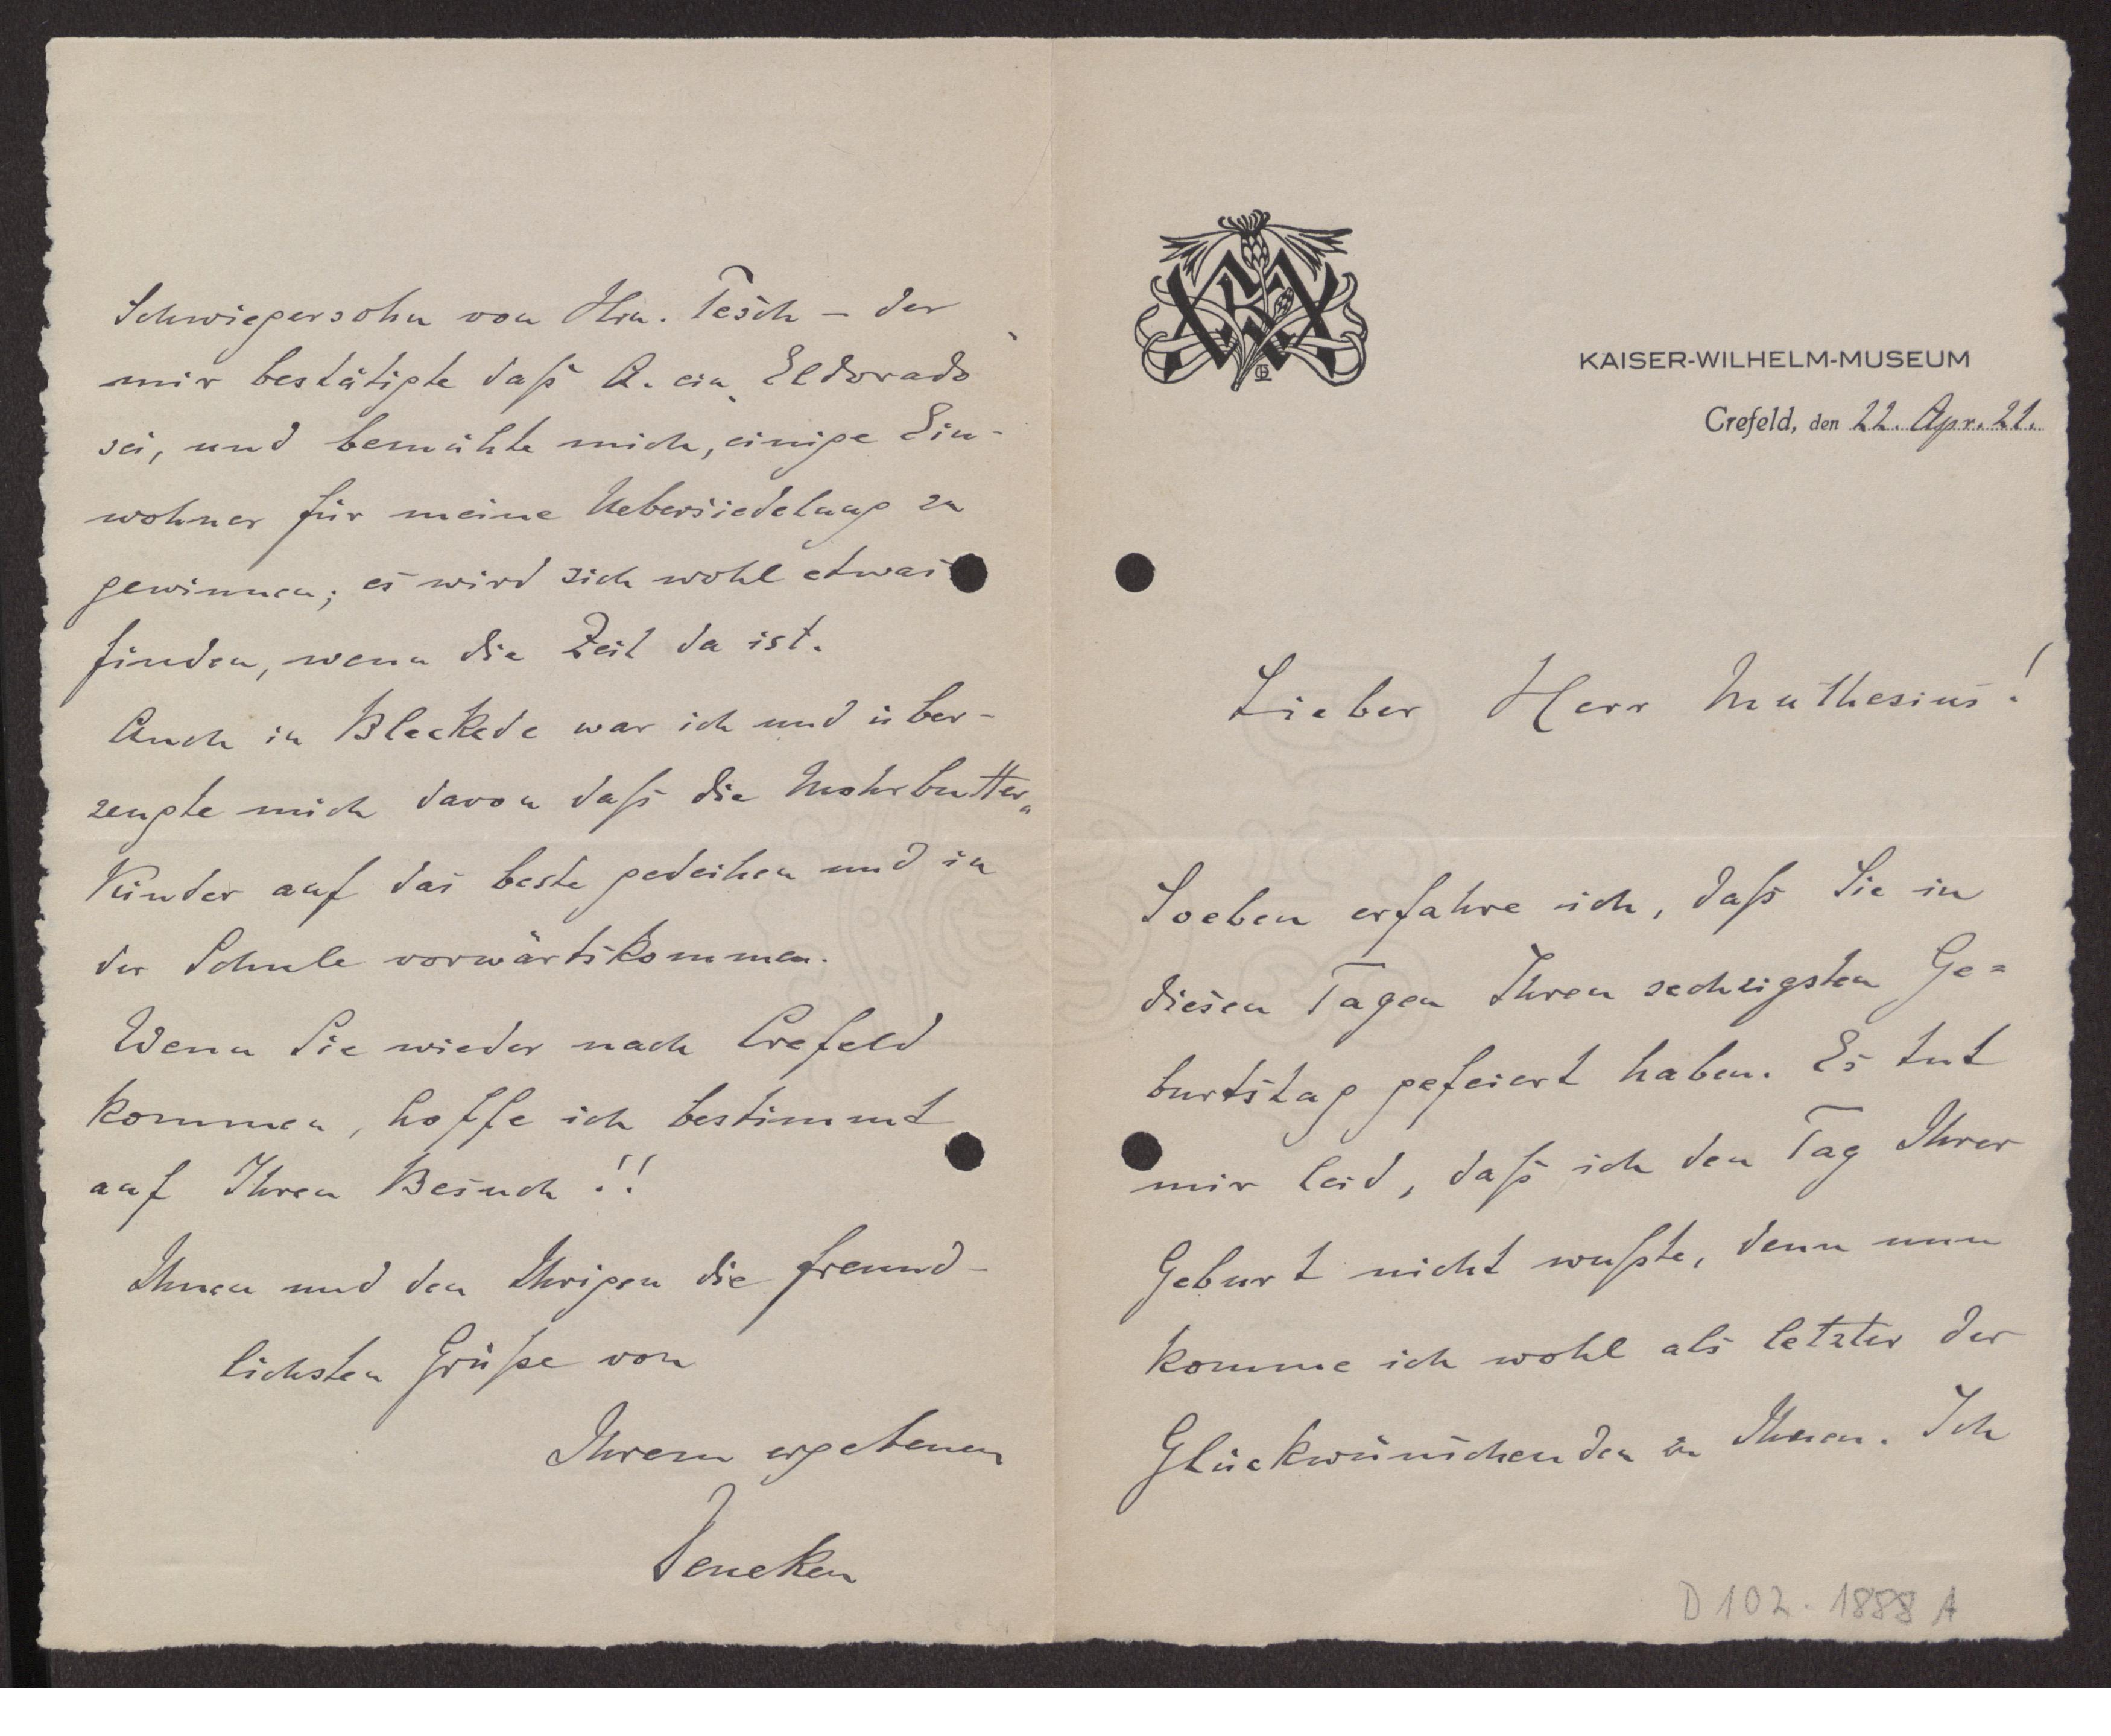 KAISER-WILHELM-MUSEUM
Crefeld, den 22. Apr. 21.
Lieber Herr Muthesius!
Soeben erfahre ich, daß Sie in
diesen Tagen Ihren sechzigsten Ge=
burtstag gefeiert haben. Es tut
mir leid, daß ich den Tag Ihrer
Geburt nicht wußte, denn nun
komme ich wohl als letzter der
Glückwünschenden zu Ihnen. Ich
D 102 - 1888 A
Schwiegersohn von Hrn. Tesch – der
mir bestätigte daß A. ein Eldorado
sei, und bemühte mich, einige Ein-
wohner für meine Uebersiedelung zu
gewinnen; es wird sich wohl etwas
finden, wenn die Zeit da ist.
Auch in Bleckede war ich und über-
zeugte mich davon daß die Mohrbutter„
Kinder auf das beste gedeihen und in
der Schule vorwärtskommen.
Wenn Sie wieder nach Crefeld
kommen, hoffe ich bestimmt
auf Ihren Besuch!!
Ihnen und den Ihrigen die freund-
lichsten Grüße von
Ihrem ergebenen
Deneken